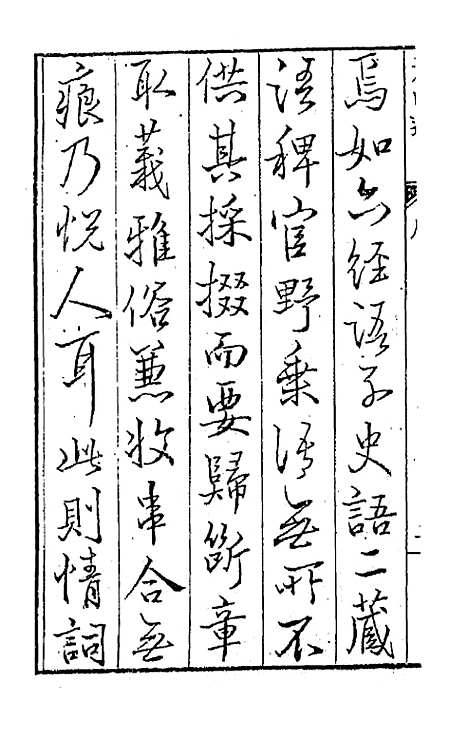 焉如六经语子史語二蔵
語稗官野乗語無所不
供其採掇而要歸斷章
取義雅俗兼收串合無
痕乃悦人耳此則情詞